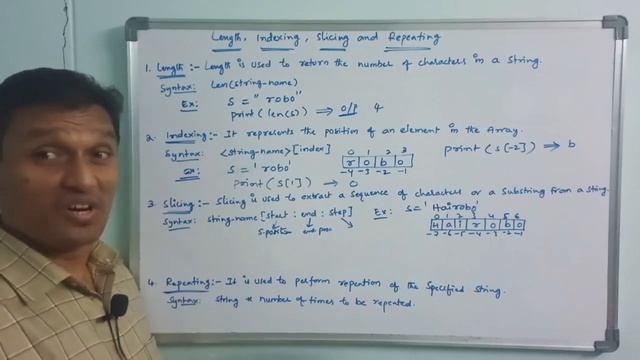 Length, Indexing, Slicing and Repeating
1. Length :- Length is used to return the number of characters in a string.
Syntax: Len(string-name)
Ex: S = "robo"
print(len(s)) ⇒ O/P 4
2. Indexing :- It represents the position of an element in the Array.
Syntax: <string-name>[index]
0 1 2 3
r o b o
-4 -3 -2 -1
print(s[-2]) ⇒ b
Ex: S = 'robo'
print(s[1]) → o
3. Slicing :- Slicing is used to extract a sequence of characters or a substring from a string.
Syntax: string-name[start : end : step]
s.position end pos
Ex: S = 'Hairobo'
0 1 2 3 4 5 6
H a i r o b o
-7 -6 -5 -4 -3 -2 -1
4. Repeating :- It is used to perform repetion of the specified string.
Syntax: string * number of times to be repeated.